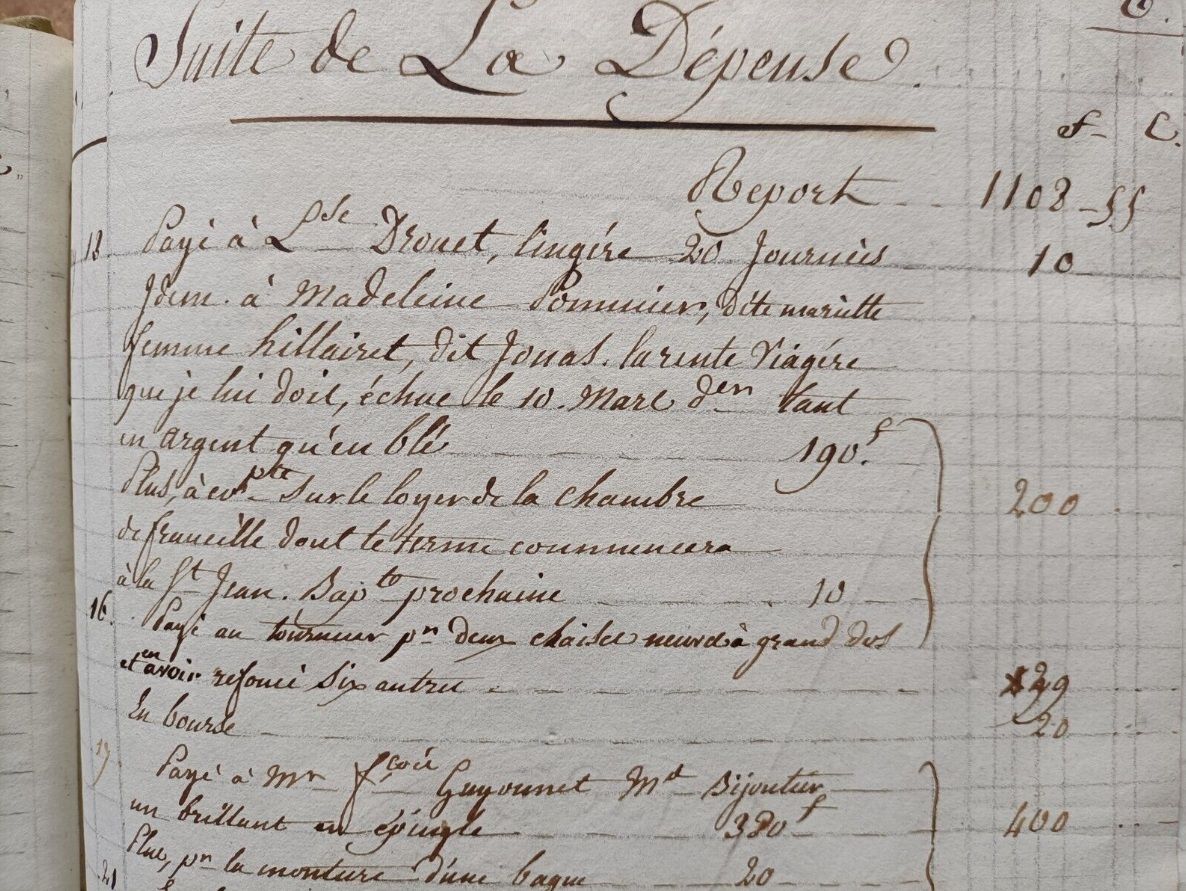 Suite de La Dépense.
f- C.
Report 1108-55
13. Payé à Lse Drouet, lingére 20 Journées 10
Idem à Madeleine Pommier, dite mariette
femme hillairet, dit Jonas. la rente Viagére
que je lui doit, échue le 10. Mars den tant
en argent qu'en blé 190f.
Plus, à compte Sur le loyer de la chambre 200
de franeille dont le terme commencera
à la St Jean. Bapte prochaine 10
16. Payé au tourneur pr deux chaises neuves à grand dos
et en avoir refoncé Six autres 29
En bourse 20
17 Payé à Mr fcois Guyonnet Md Bijoutier,
un brillant en épingle 380f 400
Plus, pr la monture d'une bague 20
21